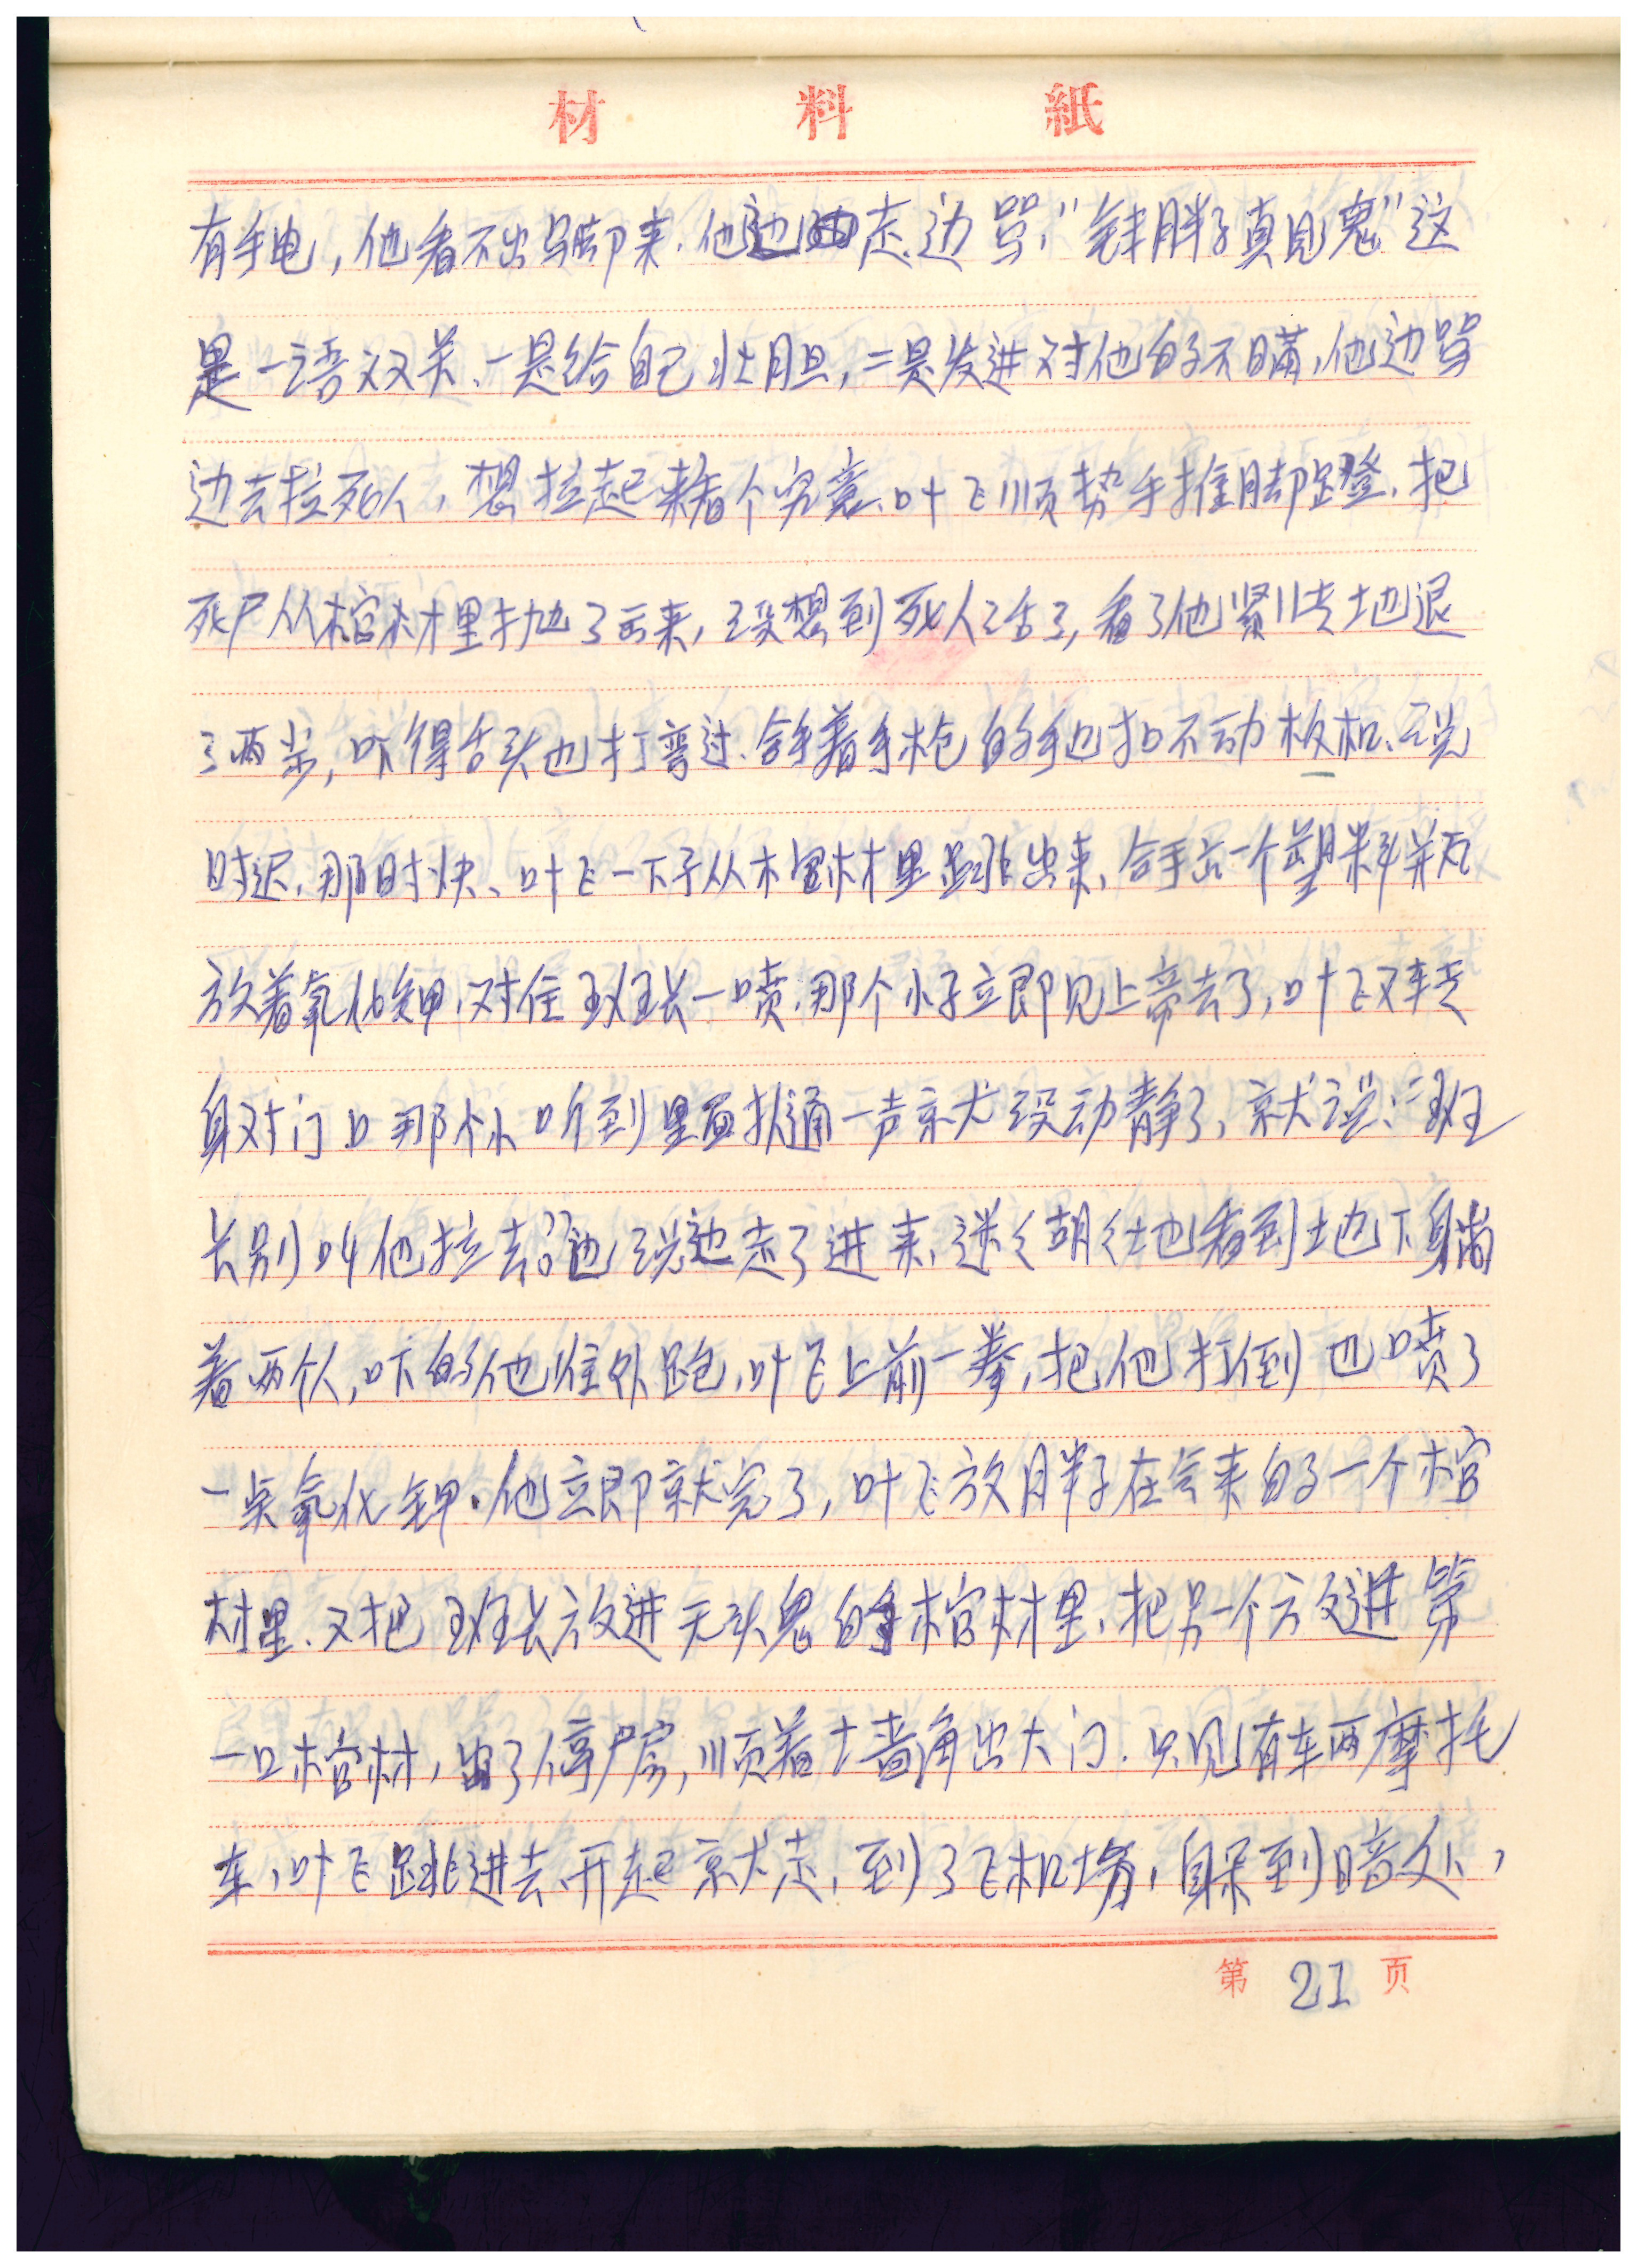 材料紙
有手电，他看不出马脚来．他边走边骂，"钱胖子真见鬼"这
是一语双关、一是给自己壮胆，二是发进对他的不瞒，他边骂
边去拉死人，想拉起来看个究竟、叶飞顺势手推脚蹬、把
死尸从棺材里抛了出来，没想到死人活了，看了他紧地退
三两步，吓得舌头也打弯过．拿着手枪的手也扣不动板机、说
时迟，那时快、叶飞一下子从棺材里跳出来，拿出一个塑料并瓦
放着氰化钾，对住班长一喷，那个小子立即见上帝去了，叶飞又转走
身对门口那个小听到里面扑通一声就没动静了，就说：班
长别叫他拉去？边说边走了进来，迷迷胡胡地看到地下躺
着两个人，吓的他往外跑，叶飞上前一拳，把他打倒也喷了
一点氰化钾．他立即就完了，叶飞放胖子在原来的一个棺
材里、又把班长放进无头鬼的棺材里，把另一个放进第
一口棺材，出了停尸房，顺着墙角出大门．只见有车两摩托
车，叶飞跳进去开起就走，到了飞机场，躲到暗处，
第 21 页